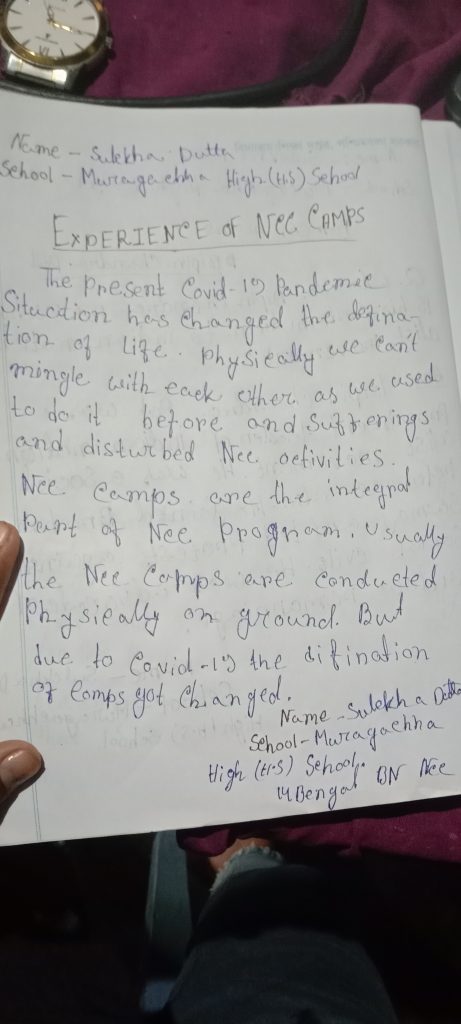 Name - Sulekha Dutta
School - Muragachha High (H.S) School
EXPERIENCE of NCC CAMPS
The Present Covid-19 Pandemic
Situation has changed the defina-
tion of life. Physically we can't
mingle with each other as we used
to do it before and sufferings
and disturbed Ncc activities.
Ncc camps are the integral
Part of Ncc program. Usually
the Ncc Camps are conducted
Physically on ground. But
due to Covid-19 the difination
of Camps got changed.
Name - Sulekha Dutta
School - Muragachha
High (H.S) School.
14 Bengal BN Ncc